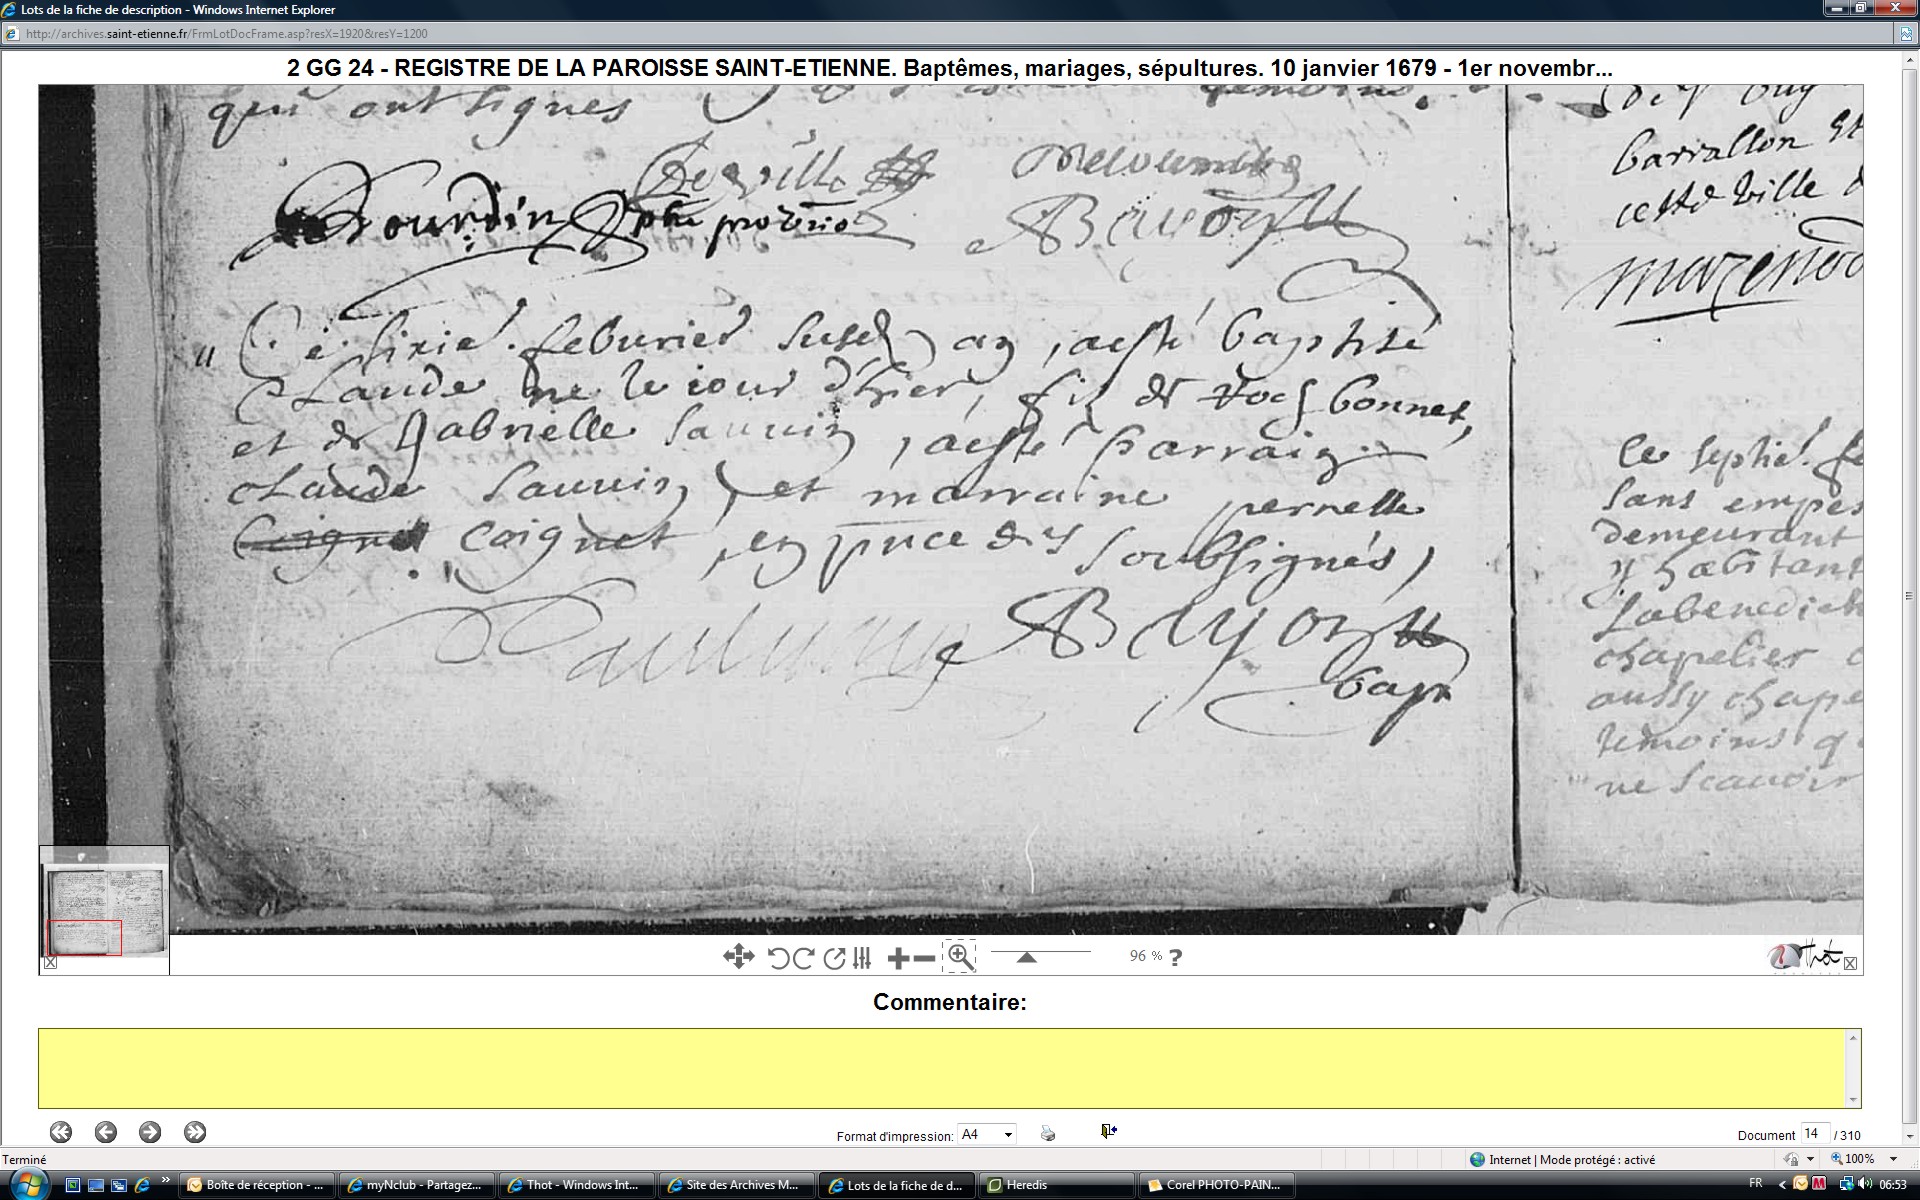 Lots de la fiche de description - Windows Internet Explorer
http://archives.saint-etienne.fr/FrmLotDocFrame.asp?resX=1920&resY=1200
2 GG 24 - REGISTRE DE LA PAROISSE SAINT-ETIENNE. Baptêmes, mariages, sépultures. 10 janvier 1679 - 1er novembr...
qui ont signes
temoins
Bourdin pbre
Bayon
Le sixie. feburier susd an, a esté baptisé
Claude ne le iour d'hier, fis de Noel bonnet,
et de Gabrielle Sauvin, a esté parrain
Claude Sauvin, et marraine pernelle
coignet, en pnce des soubsignés,
Bayon
barrallon et
cette ville d
mazenod
Ce septie. fe
sans empes
demeurant
y habitant
Labenedict
chapelier
aussy chape
temoins q
ne scavoir
96 %
?
Thot
Commentaire:
Format d'impression: A4
Document 14 / 310
Terminé
Internet | Mode protégé : activé
100%
Boîte de réception - ...
myNclub - Partagez...
Thot - Windows Int...
Site des Archives M...
Lots de la fiche de d...
Heredis
Corel PHOTO-PAIN...
FR
06:53